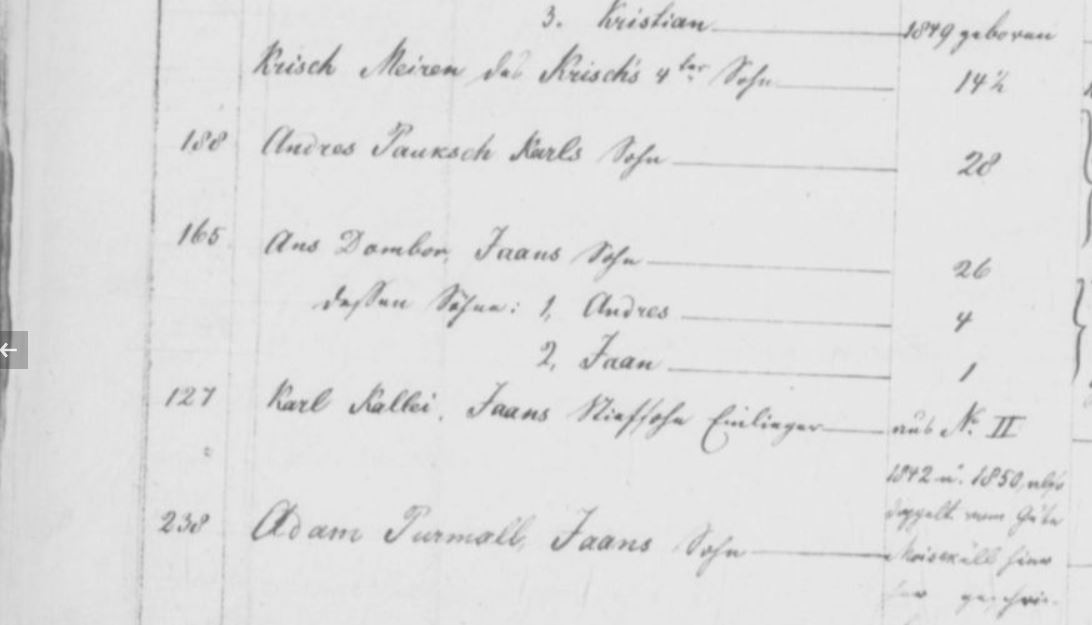 3. Kristian 1849 geboren
Krisch Meiren des Krisch's 4ter Sohn 14½
188 Andres Pauksch Karls Sohn 28
165 Ans Dombor, Jaans Sohn 26
dessen Söhne: 1, Andres 4
2, Jaan 1
127 Karl Kallei, Jaans Stiefsohn Einlieger aus No. II
1842 u. 1850, also
doppelt vom Gute
238 Adam Purmall, Jaans Sohn